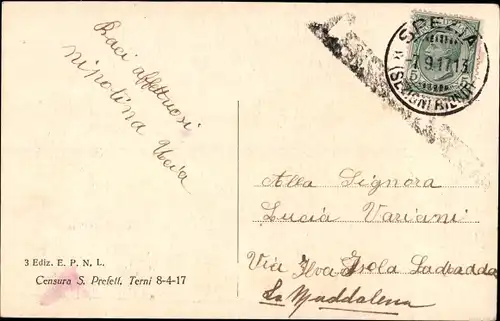 Baci affettuosi
nipotina
3 Ediz. E. P. N. L.
Censura S. Prefett. Terni 8-4-17
SPEZIA
-7.9.17 13
Alla Signora
Lucia Variani
Via Ilva Isola
La Maddalena